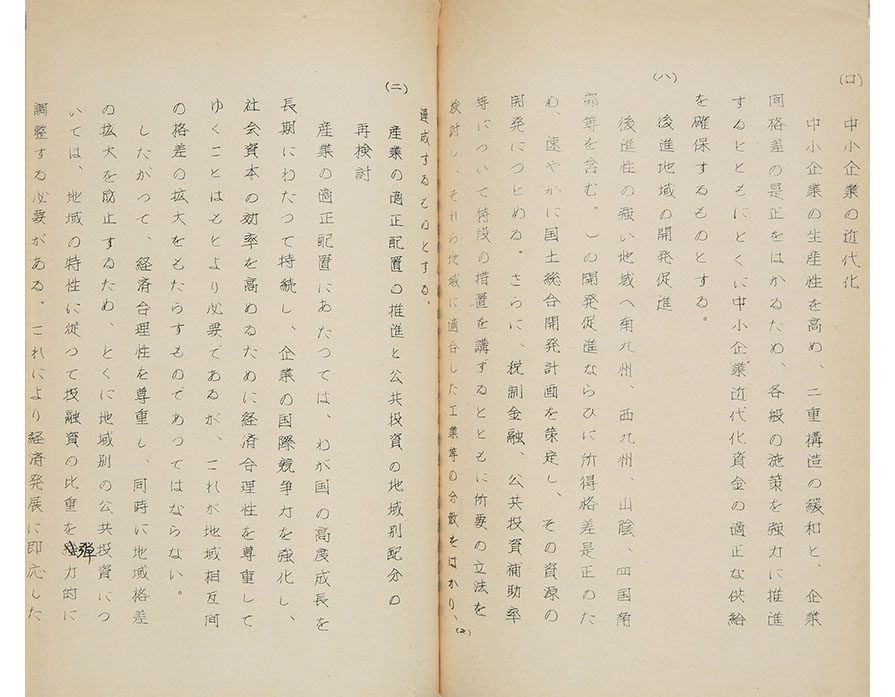 (ロ) 中小企業の近代化
中小企業の生産性を高め、二重構造の緩和と、企業
間格差の是正をはかるため、各般の施策を強力に推進
するとともにとくに中小企業近代化資金の適正な供給
を確保するものとする。
(ハ) 後進地域の開発促進
後進性の強い地域(南九州、西九州、山陰、四国南
部等を含む。)の開発促進ならびに所得格差是正のた
め、速やかに国土総合開発計画を策定し、その資源の
開発につとめる。さらに、税制金融、公共投資補助率
等について特段の措置を講ずるとともに所要の立法を
検討し、それら地域に適合した工業等の分散をはかり、
達成するものとする。
(ニ) 産業の適正配置の推進と公共投資の地域別配分の
再検討
産業の適正配置にあたつては、わが国の高度成長を
長期にわたつて持続し、企業の国際競争力を強化し、
社会資本の効率を高めるために経済合理性を尊重して
ゆくことはもとより必要であるが、これが地域相互間
の格差の拡大をもたらすものであつてはならない。
したがつて、経済合理性を尊重し、同時に地域格差
の拡大を防止するため、とくに地域別の公共投資につ
いては、地域の特性に従つて投融資の比重を弾力的に
調整する必要がある。これにより経済発展に即応した